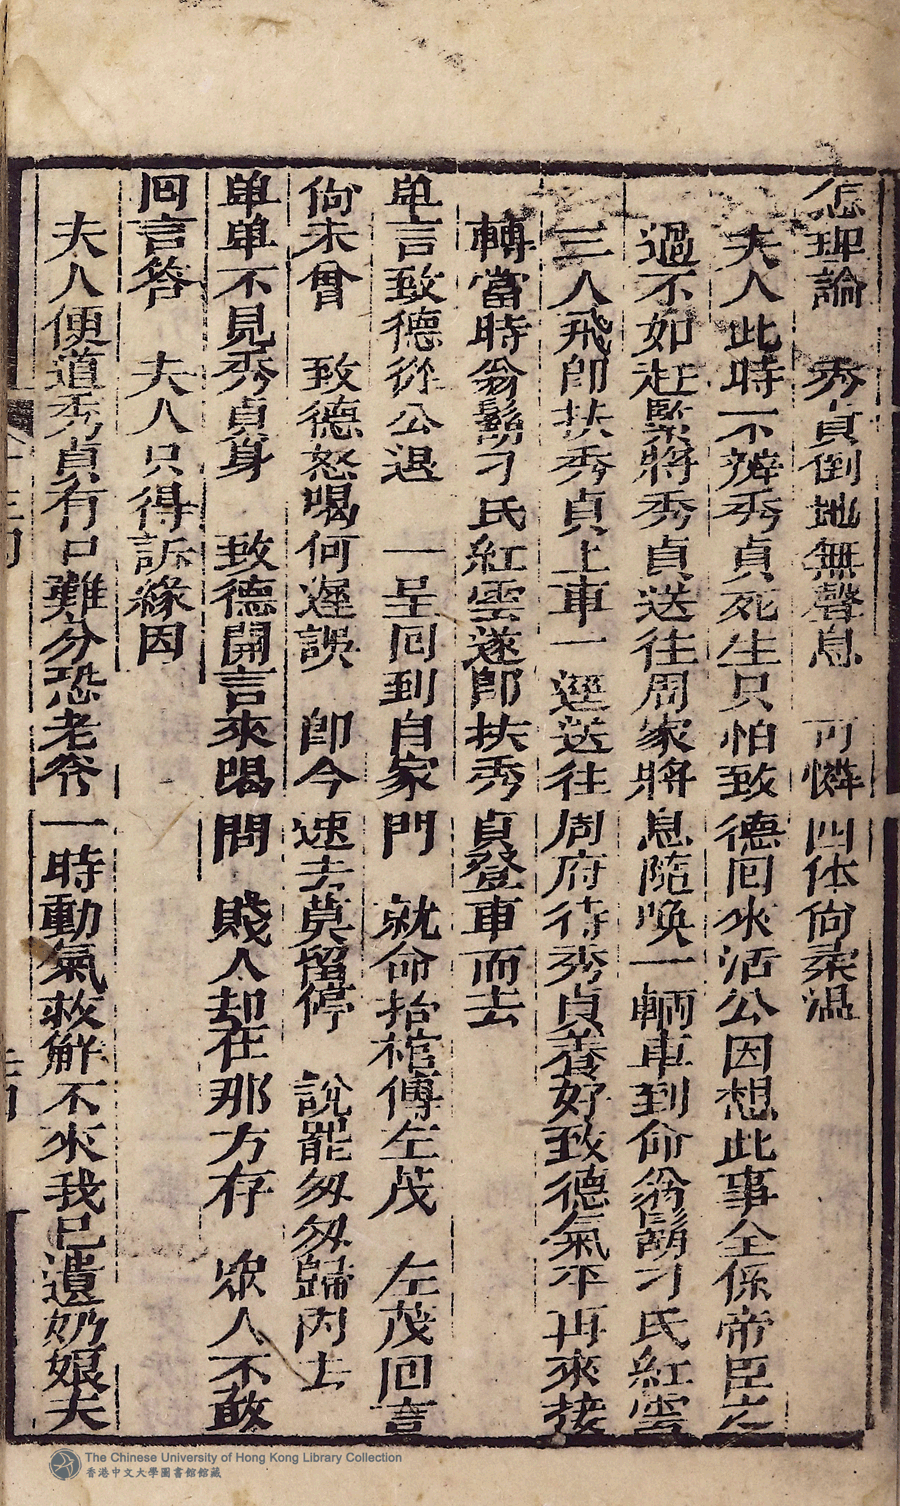 怎理論　秀貞倒地無聲息　可憐四体尙柔温
夫人此時不辨秀貞死生只怕致德回來活公因想此事全係帝臣之
過不如赶緊將秀貞送往周家將息隨喚一輌車到命翁鬍刁氏紅雲
三人飛卽扶秀貞上車一逕送往周府待秀貞養好致德氣平再來接
轉當時翁鬍刁氏紅雲遂卽扶秀貞登車而去
单言致德從公退　一呈回到自家門　就命抬棺傳左茂　左茂回言
尙未曾　致德怒喝何遲誤　卽今速去莫留停　說罷匆匆歸內去
单单不見秀貞身　致德開言來喝問　賤人却在那方存　众人不敢
回言答　夫人只得訴緣因
夫人便道秀貞有口難分恐老爷一時動氣救解不來我已遺奶娘夫
The Chinese University of Hong Kong Library Collection
香港中文大學圖書館館藏